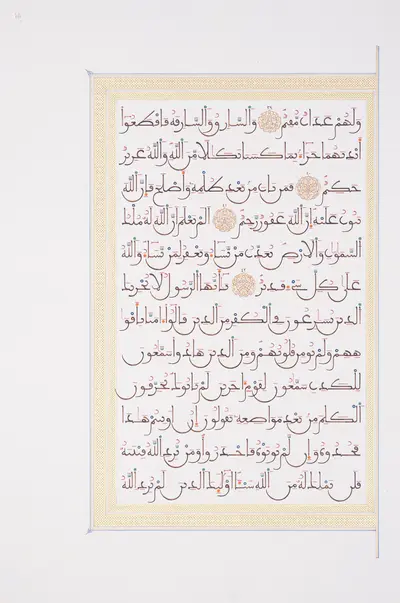 ولهم عذاب مقيم والسارق والسارقة فاقطعوا
أيديهما جزاء بما كسبا نكالا من الله والله عزيز
حكيم فمن تاب من بعد ظلمه وأصلح فإن الله
يتوب عليه إن الله غفور رحيم ألم تعلم أن الله له ملك
السموات والارض يعذب من يشاء ويغفر لمن يشاء والله
على كل شيء قدير يأيها الرسول لا يحزنك
الذين يسرعون في الكفر من الذين قالوا ءامنا بأفوا
ههم ولم تومن قلوبهم ومن الذين هادوا سمعون
للكذب سمعون لقوم اخرين لم ياتوك يحرفون
الكلم من بعد مواضعه يقولون إن أوتيتم هذا
فخذوه وإن لم توتوه فاحذروا ومن يرد الله فتنته
فلن تملك له من الله شيئا أولئك الذين لم يرد الله